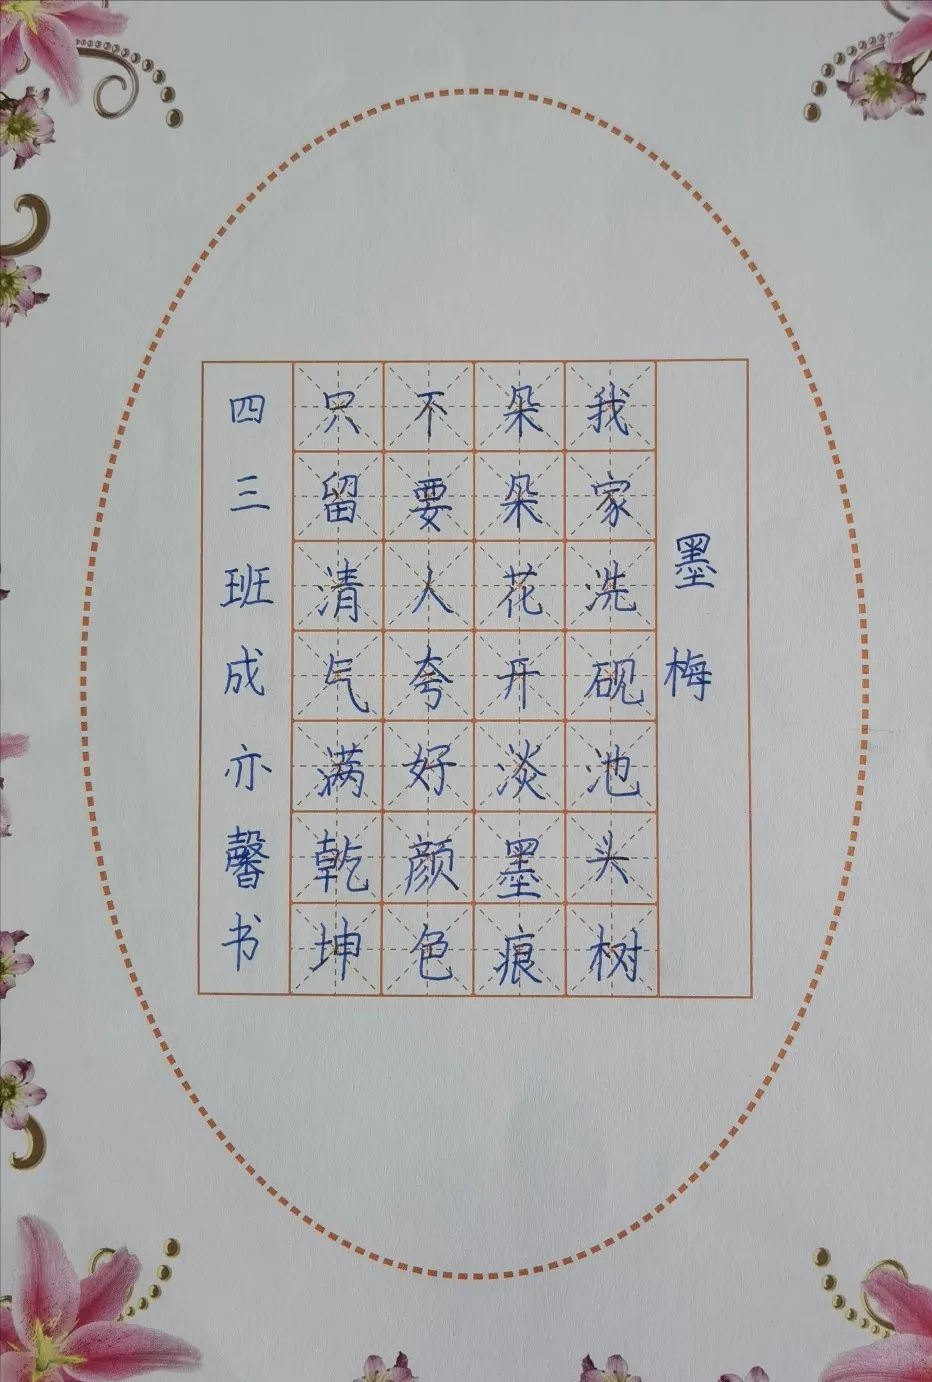 墨梅
我家洗砚池头树
朵朵花开淡墨痕
不要人夸好颜色
只留清气满乾坤
四三班成亦馨书